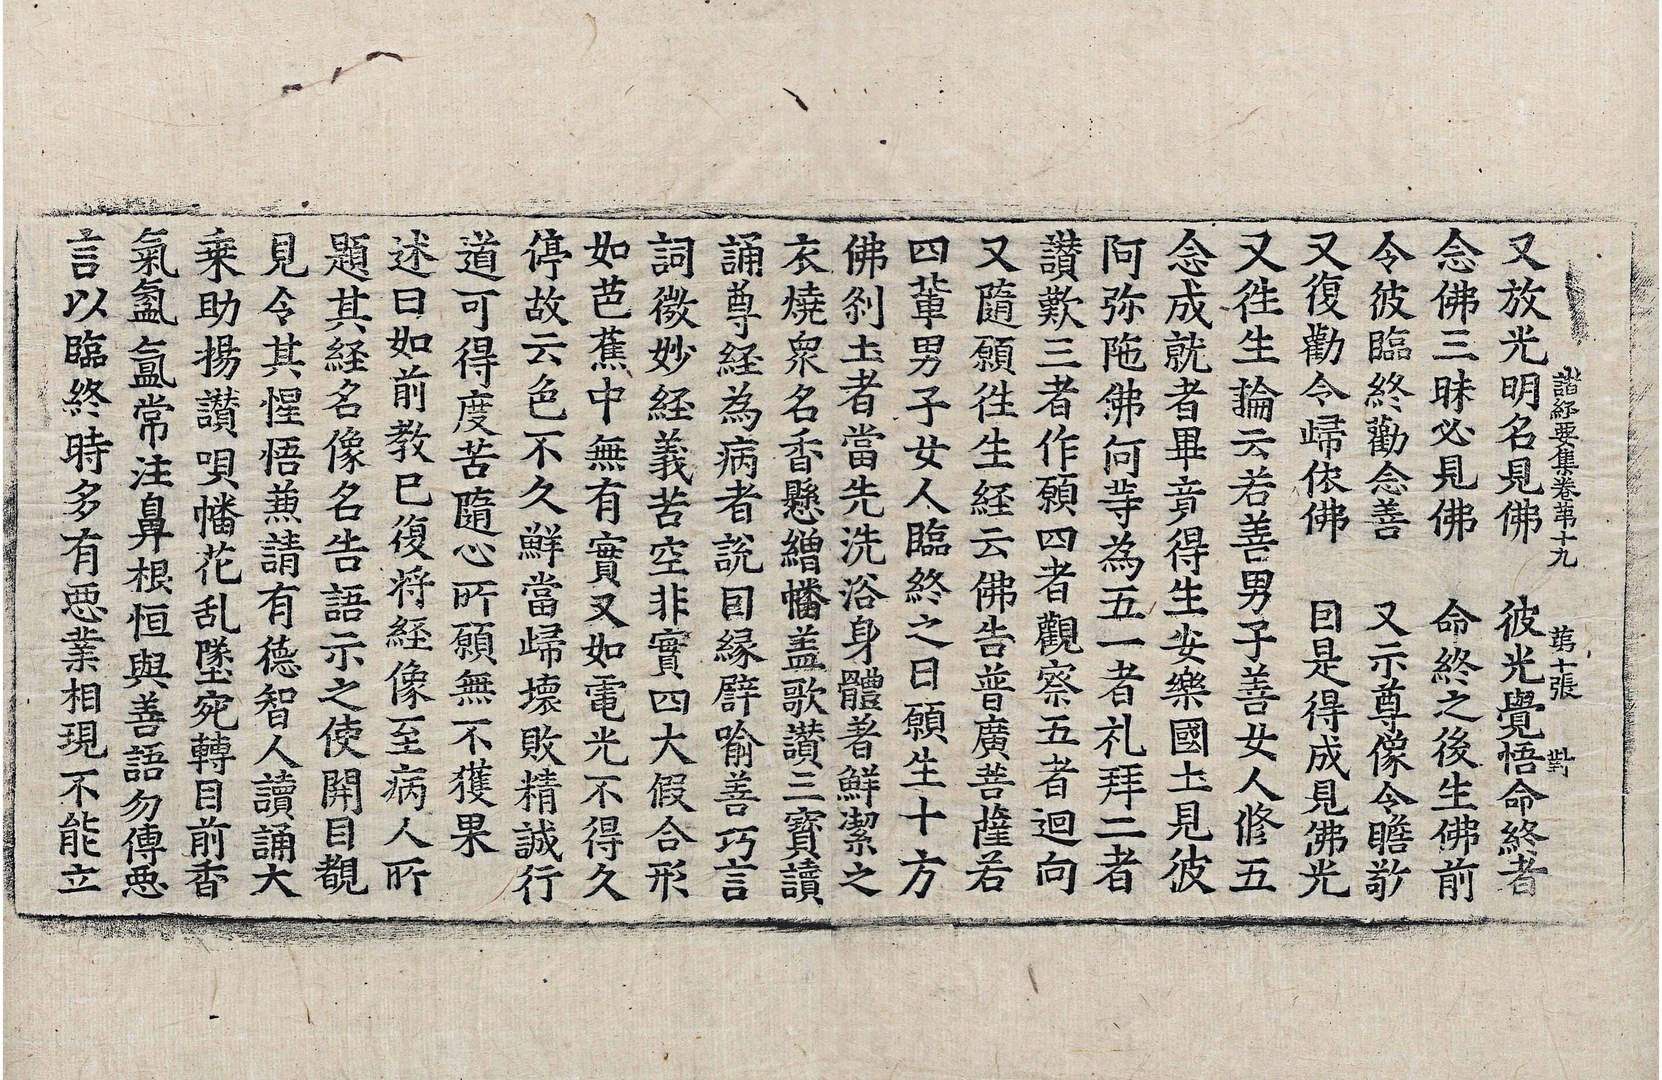 諸経要集卷苐十九　苐十張　對
又放光明名見佛　彼光覺悟命終者
念佛三昧必見佛　命終之後生佛前
令彼臨終勸念善　又示尊像令瞻敬
又復勸令歸依佛　因是得成見佛光
又往生論云若善男子善女人修五
念成就者畢竟得生安樂國土見彼
阿弥陁佛何等為五一者礼拜二者
讃歎三者作願四者觀察五者迴向
又隨願往生経云佛告普廣菩薩若
四輩男子女人臨終之日願生十方
佛刹土者當先洗浴身體著鮮潔之
衣燒衆名香懸繒幡盖歌讃三寶讀
誦尊経為病者說因緣譬喻善巧言
詞微妙経義苦空非實四大假合形
如芭蕉中無有實又如電光不得久
停故云色不久鮮當歸壞敗精誠行
道可得度苦隨心所願無不獲果
述曰如前教已復将経像至病人所
題其経名像名告語示之使開目覩
見令其惺悟兼請有德智人讀誦大
乗助揚讃唄幡花乱墜宛轉目前香
氣氳氳常注鼻根恒與善語勿傳惡
言以臨終時多有惡業相現不能立